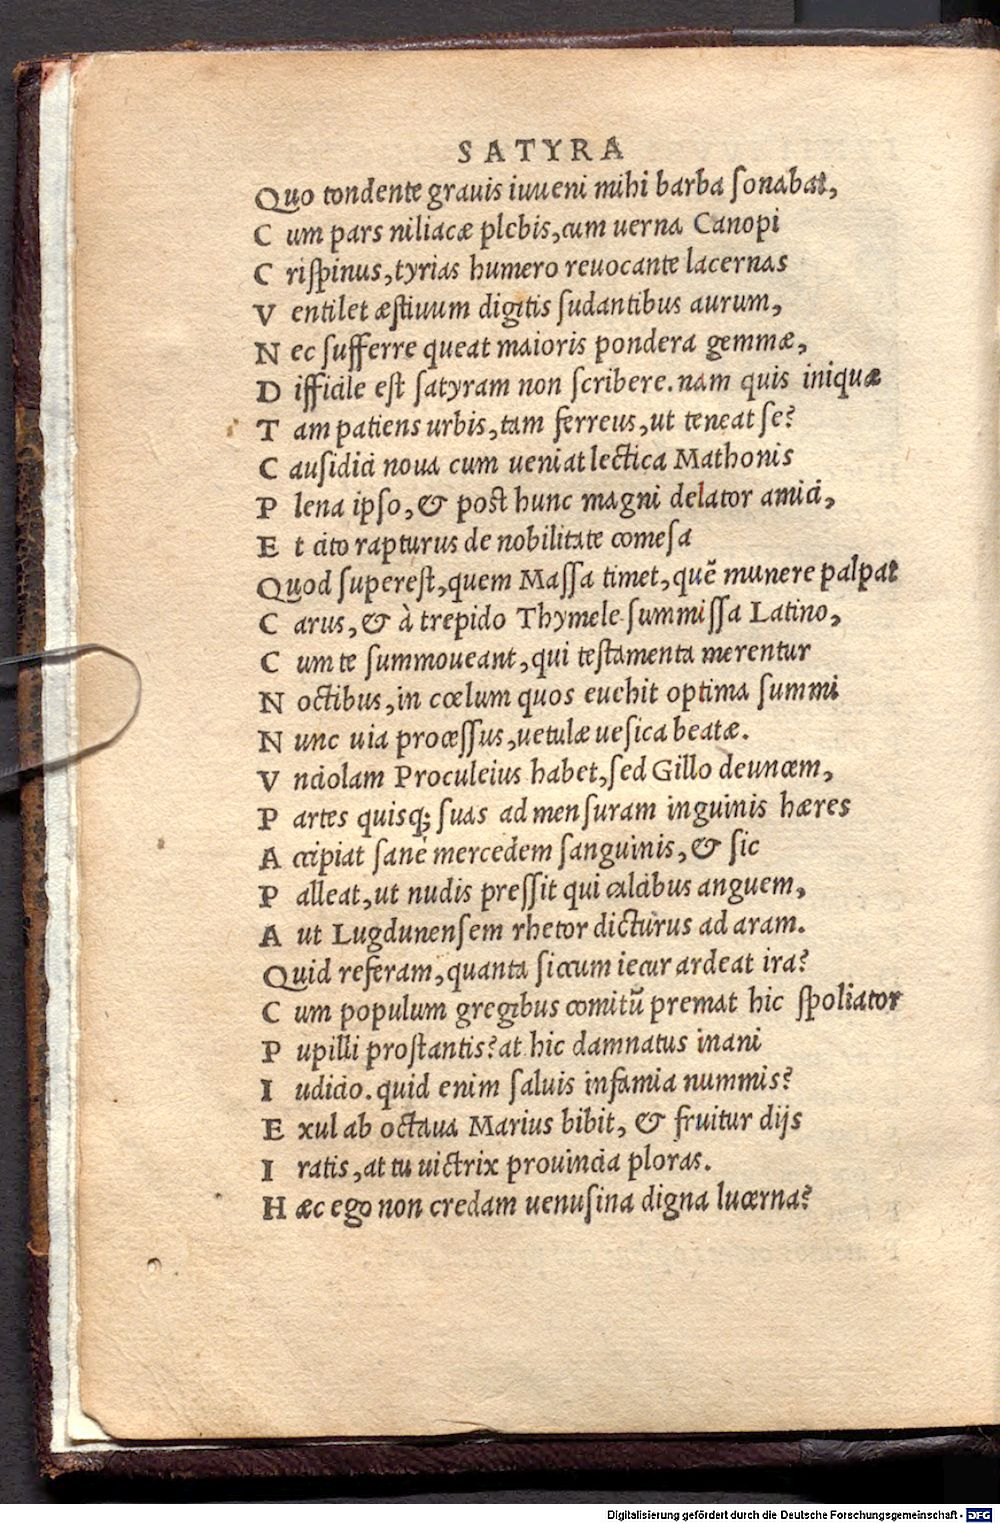 SATYRA
Quo tondente grauis iuueni mihi barba ſonabat,
C um pars niliacæ plebis, cum uerna Canopi
C riſpinus, tyrias humero reuocante lacernas
V entilet æſtiuum digitis ſudantibus aurum,
N ec ſufferre queat maioris pondera gemmæ,
D ifficile eſt ſatyram non ſcribere. nam quis iniquæ
T am patiens urbis, tam ferreus, ut teneat ſe?
C auſidici noua cum ueniat lectica Mathonis
P lena ipſo, & poſt hunc magni delator amici,
E t cito rapturus de nobilitate comeſa
Quod ſupereſt, quem Maſſa timet, quē munere palpat
C arus, & à trepido Thymele ſummiſſa Latino,
C um te ſummoueant, qui teſtamenta merentur
N octibus, in cœlum quos euehit optima ſummi
N unc uia proceſſus, uetulæ ueſica beatæ.
V nciolam Proculeius habet, ſed Gillo deuncem,
P artes quisq; ſuas ad menſuram inguinis hæres
A ccipiat ſanè mercedem ſanguinis, & ſic
P alleat, ut nudis preſſit qui calcibus anguem,
A ut Lugdunenſem rhetor dicturus ad aram.
Quid referam, quanta ſiccum iecur ardeat ira?
C um populum gregibus comitū premat hic ſpoliator
P upilli proſtantis? at hic damnatus inani
I udicio. quid enim ſaluis infamia nummis?
E xul ab octaua Marius bibit, & fruitur dijs
I ratis, at tu uictrix prouincia ploras.
H æc ego non credam uenuſina digna lucerna?
Digitalisierung gefördert durch die Deutsche Forschungsgemeinschaft - DFG